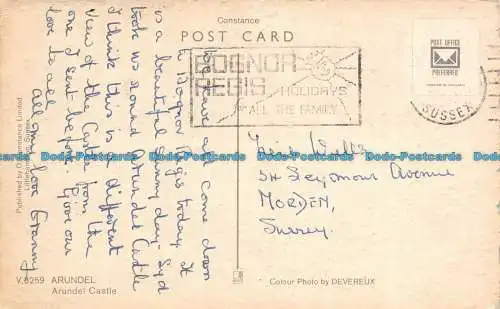 Constance
POST CARD
BOGNOR
REGIS
HOLIDAYS
FOR ALL THE FAMILY
SUSSEX
POST OFFICE
PREFERRED
We have all come down
to Bognor Regis today. It
is a beautiful sunny day - Syd
took us round Arundel Castle
I think this is a different
View of the Castle from the
one I sent before. Give our
love to all
All my love Granny
54 Seymour Avenue
MORDEN,
Surrey.
Published by D. Constance Limited
Littlehampton, Sussex
V.8259 ARUNDEL
Arundel Castle
Colour Photo by DEVEREUX
Dodo-Postcards Dodo-Postcards Dodo-Postcards Dodo-Postcards Dodo-Postcards